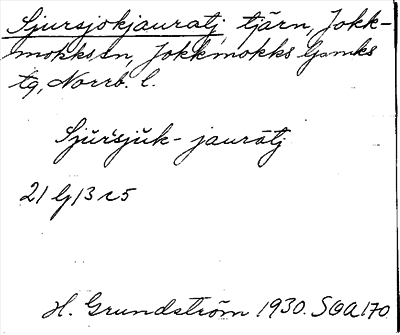 Sjursjokjauratj, tjärn, Jokk-
mokks sn, Jokkmokks lpmks
tg, Norrb. l.
Sjŭrsjŭk- jaurātj
21 G/3 c5
H. Grundström 1930. SOA 170